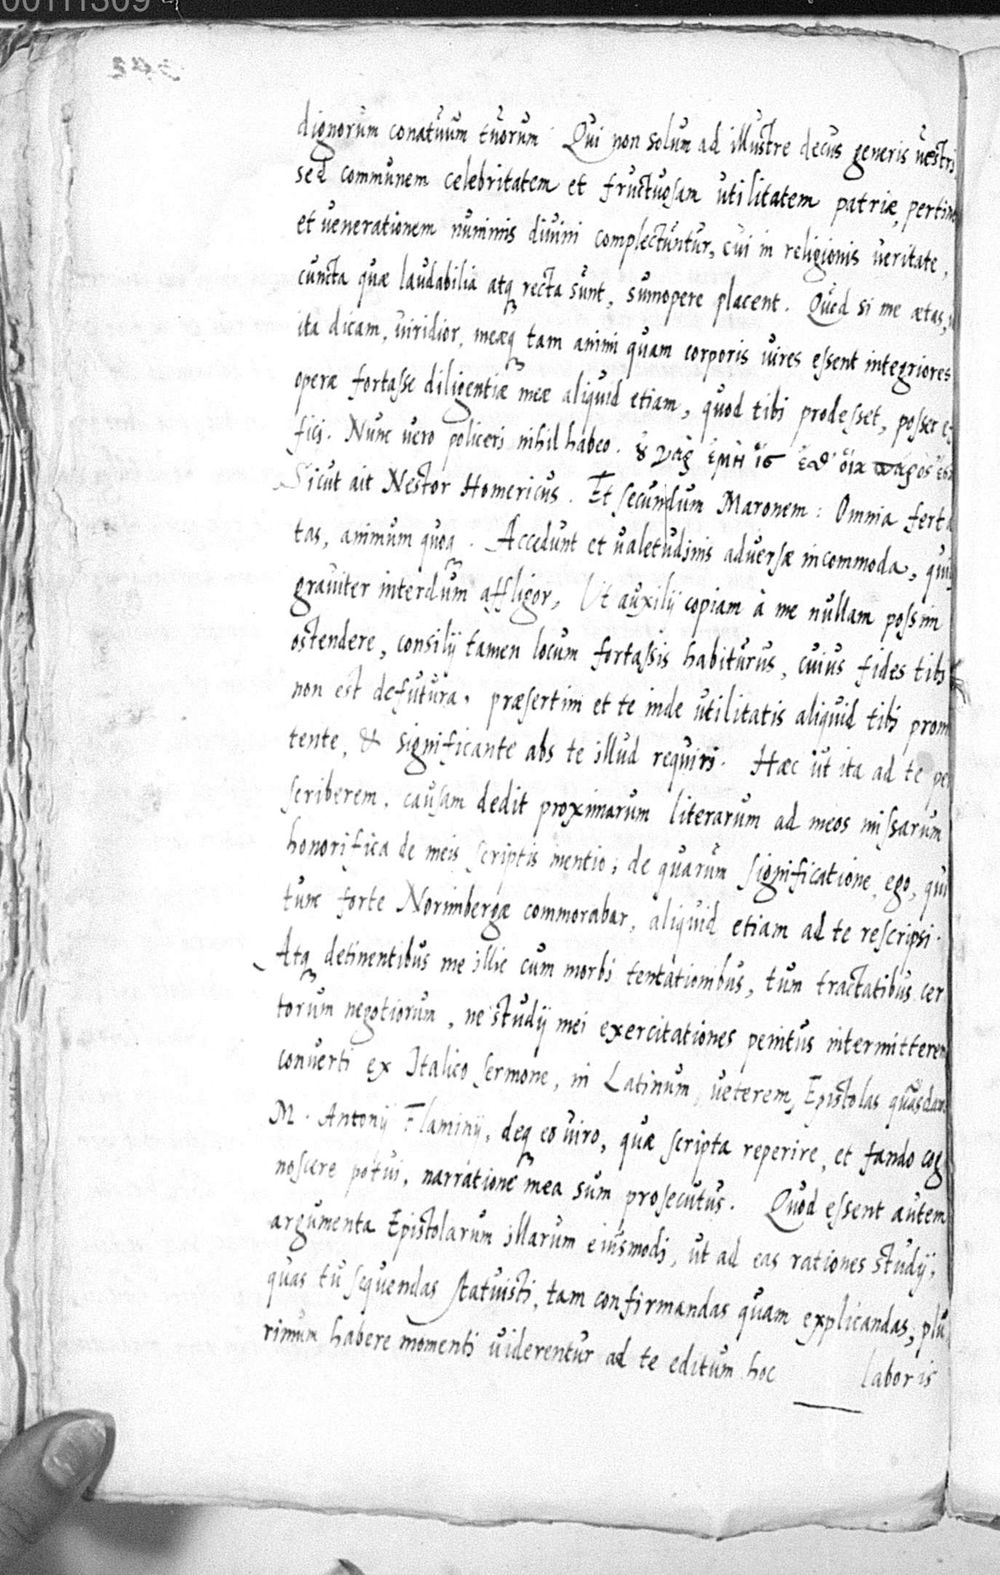 00111309
dignorum conatuum tuorum. Qui non solum ad illustre decus generis vestri
sed communem celebritatem et fructuosam utilitatem patriæ, pertin
et venerationem numinis divini complectuntur, cui in religionis veritate,
cuncta quæ laudabilia atq recta sunt, sumopere placent. Quod si me ætas,
ita dicam, viridior, meæq tam animi quam corporis vires essent integriores
operæ fortasse diligentiæ meæ aliquid etiam, quod tibi prodesset, posset
fici. Nunc vero policeri nihil habeo. οὐ γὰρ ἐμὴ ἲς ἐσθ' οἵα πάρος
Sicut ait Nestor Homericus. Et secundum Maronem: Omnia fert
tas, animum quoq. Accedunt et valetudinis adversæ incommoda, qui
graviter interdum affligor, Ut auxilij copiam à me nullam possim
ostendere, consilij tamen locum fortassis habiturus, cuius fides tibi
non est defutura, præsertim et te inde utilitatis aliquid tibi prom
tente, & significante abs te illud requiri. Hæc ut ita ad te pe
scriberem, causam dedit proximarum literarum ad meos missarum
honorifica de meis scriptis mentio; de quarum significatione, ego, qui
tunc forte Norimbergæ commorabar, aliquid etiam ad te rescripsi.
Atq detinentibus me illic cum morbi tentationibus, tum tractatibus cer
torum negotiorum, ne studij mei exercitationes penitus intermitterem
converti ex Italico sermone, in Latinum, veterem, Epistolas quasdam
M. Antonij Flaminij, deq eo viro, quæ scripta reperire, et fando cog
noscere potui, narratione mea sum prosecutus. Quod essent autem
argumenta Epistolarum illarum eiusmodi, ut ad eas rationes studij,
quas tu sequendas statuisti, tam confirmandas quam explicandas, plu
rimum habere momenti viderentur ad te editum hoc laboris